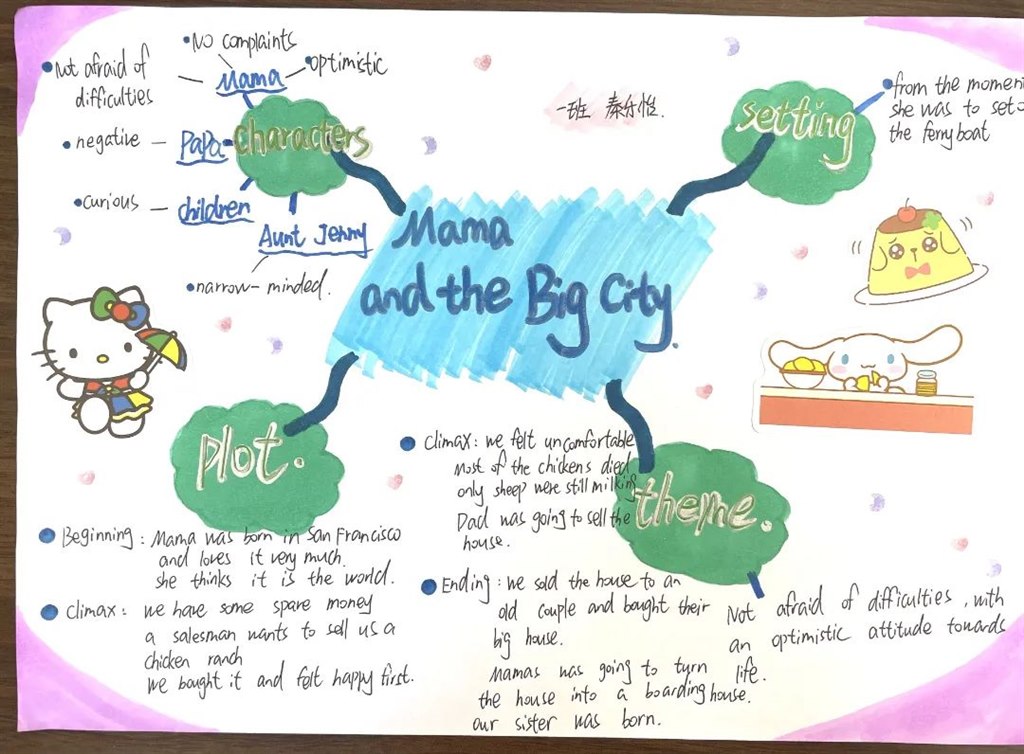 No complaints
Not afraid of
difficulties
Mama
optimistic
characters
negative
Papa
curious
children
Aunt Jenny
narrow-minded.
一班 秦乐怡.
setting
from the momen
she was to set
the ferryboat
Mama
and the Big City.
plot.
Beginning: Mama was born in San Francisco
and loves it very much.
she thinks it is the world.
climax: we have some spare money
a salesman wants to sell us a
chicken ranch
we bought it and felt happy first.
climax: we felt uncomfortable
most of the chickens died
only sheep were still milking
Dad was going to sell the
house.
Ending: we sold the house to an
old couple and bought their
big house.
Mamas was going to turn
the house into a boarding house.
our sister was born.
theme.
Not afraid of difficulties, with
an optimistic attitude towards
life.